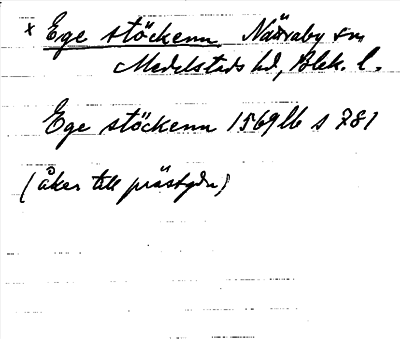 x Ege stöckenn Nättraby sn
Medelstads hd, Blek. l.
Ege stöckenn 1569 lb s 781
(åker till prästgdn)